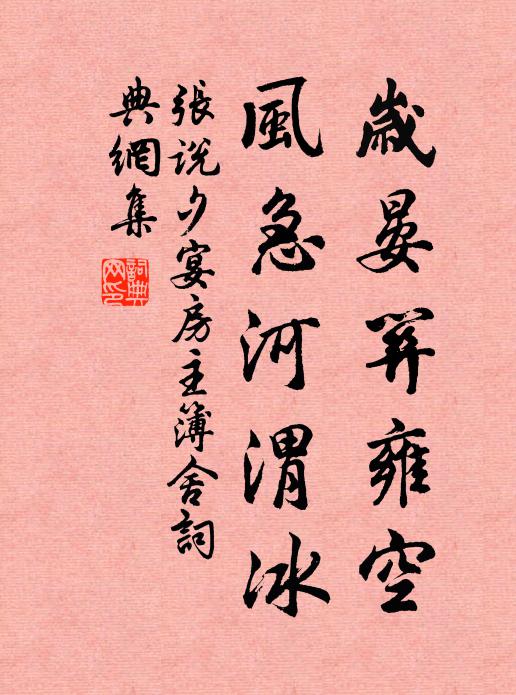 歲晏關雍空
風急河渭冰
張說夕宴房主簿舍詞
典網集
詞典
网印